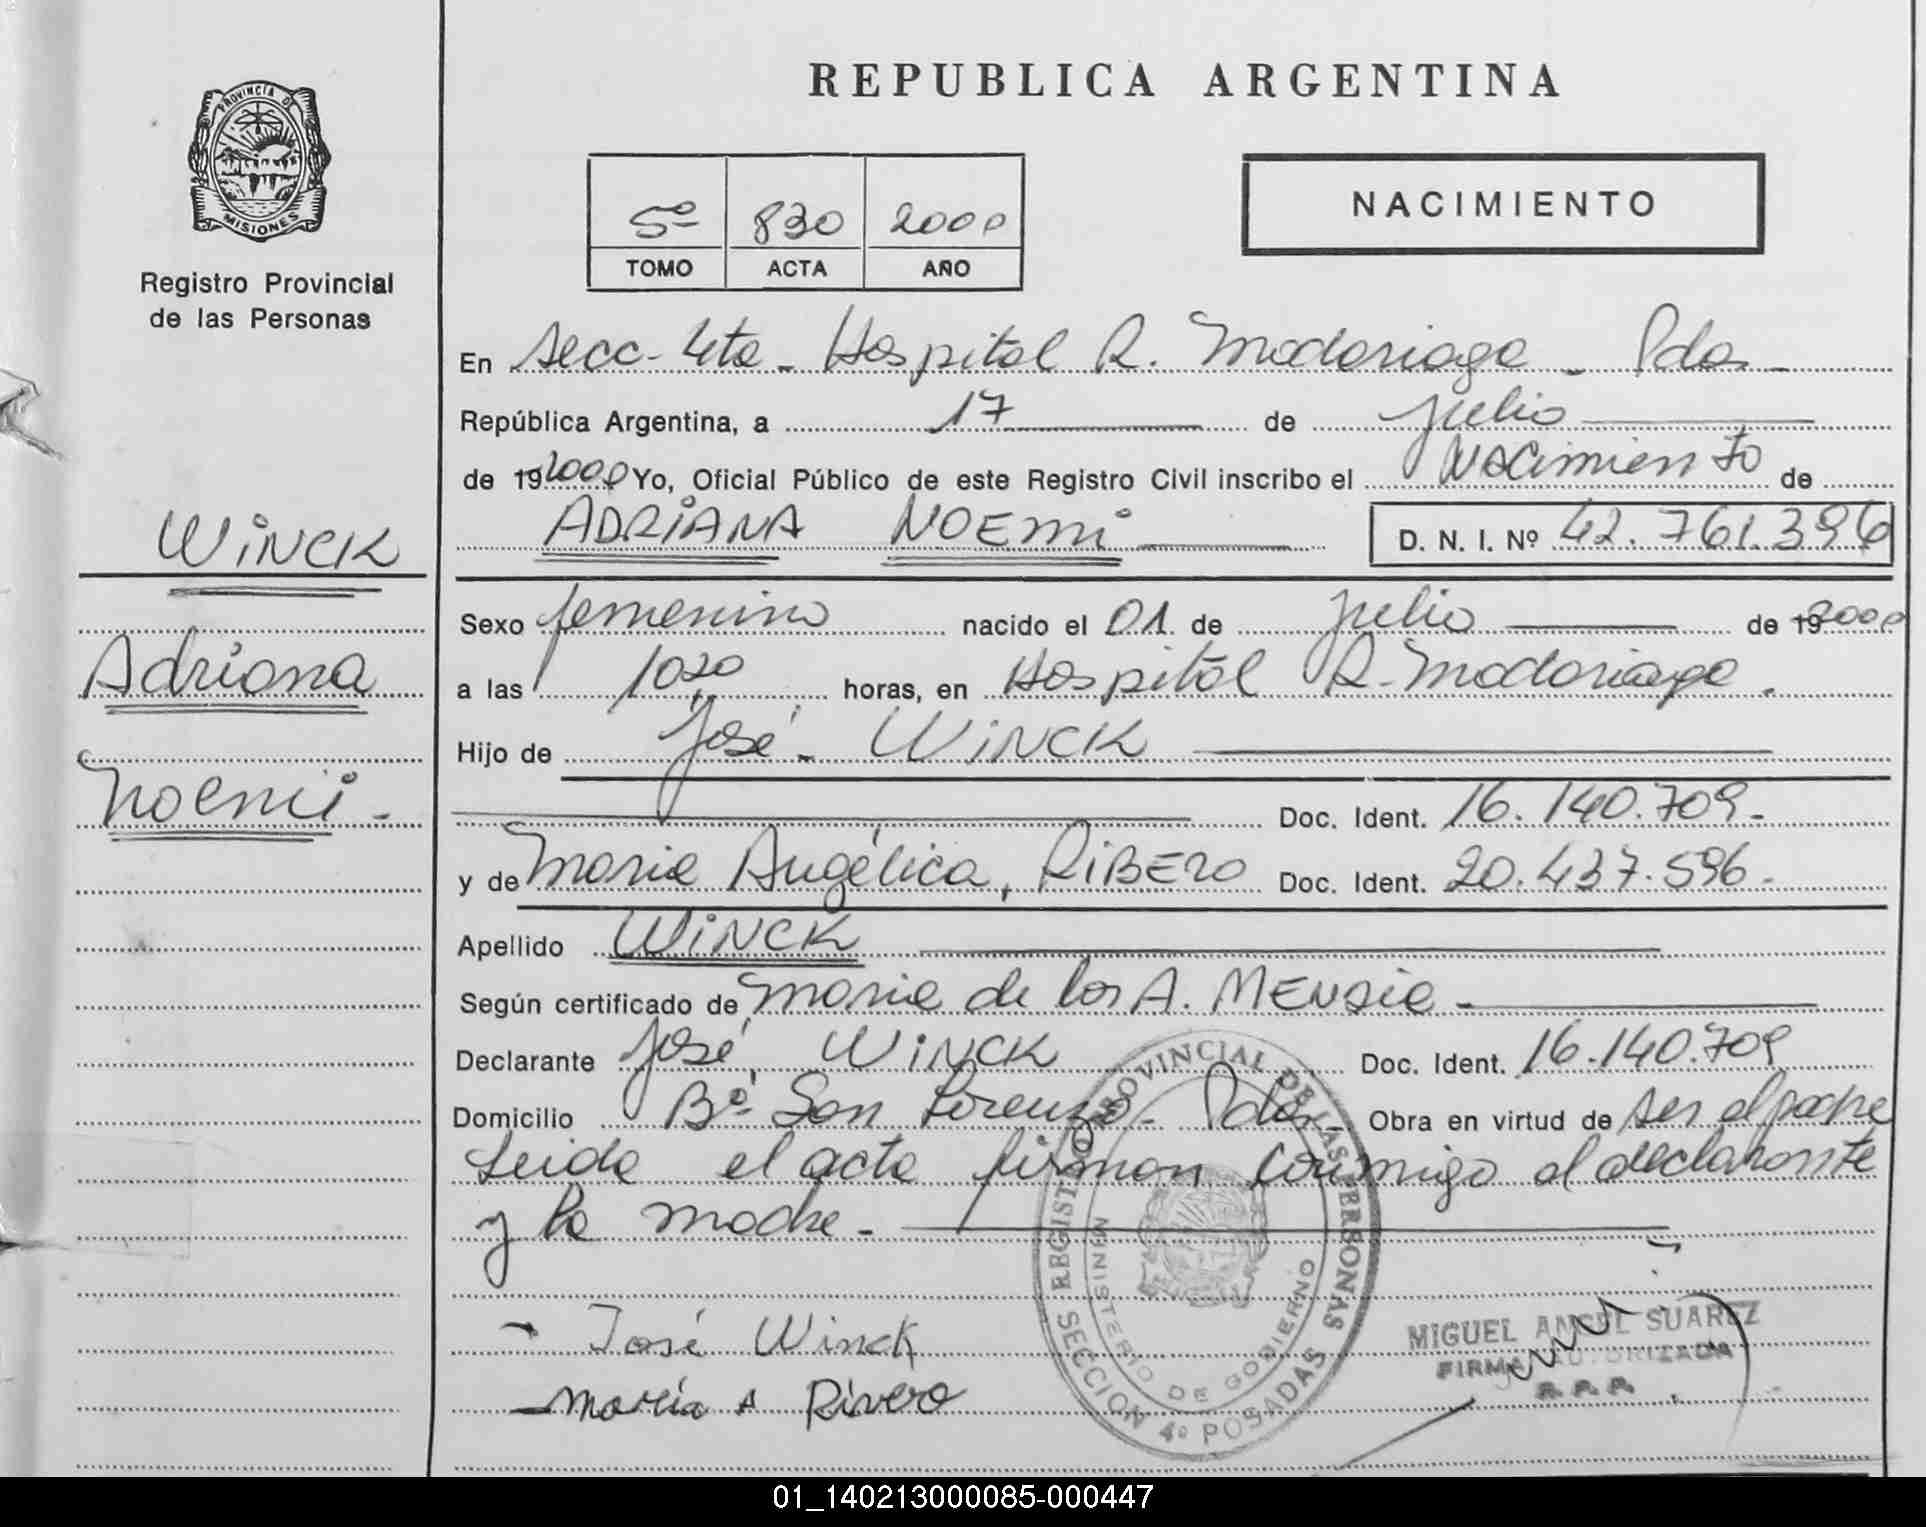 REPUBLICA ARGENTINA
PROVINCIA DE
MISIONES
Registro Provincial
de las Personas
5º 830 2000
TOMO ACTA AÑO
NACIMIENTO
En Secc- 4ta - Hospital R. Madariaga - Pdas -
República Argentina, a 17 de julio
de 19 2000 Yo, Oficial Público de este Registro Civil inscribo el nacimiento de
ADRIANA NOEMI D. N. I. Nº 42.761.396
WINCK
Adriana
Noemi -
Sexo femenino nacido el 01 de julio de 19 2000
a las 1020 horas, en Hospital R. Madariaga.
Hijo de José - WINCK
Doc. Ident. 16.140.709 -
y de Maria Angélica, RIBERO Doc. Ident. 20.437.596 -
Apellido WINCK
Según certificado de Maria de los A.
Declarante José, WINCK Doc. Ident. 16.140.709
Domicilio Bº San Lorenzo - Pdas - Obra en virtud de ser el padre
Leida el acta firman conmigo el declarante
y la madre -
- José Winck
- Maria A Rivero
REGISTRO PROVINCIAL DE LAS PERSONAS
SECCION 4º POSADAS
MINISTERIO DE GOBIERNO
MIGUEL ANGEL SUAREZ
FIRMA AUTORIZADA
R. P. P.
01_140213000085-000447